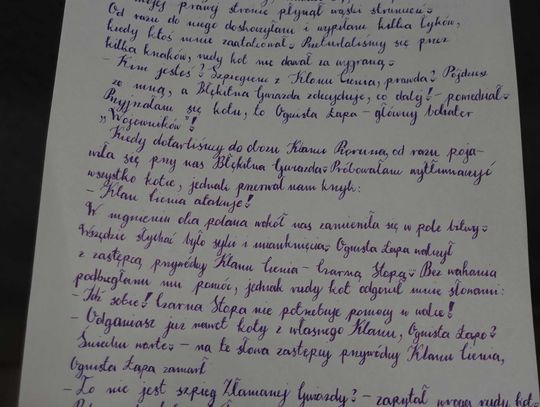 mojej prawej stronie płynął wąski strumień.
Od razu do niego doskoczyłam i wypiłam kilka łyków,
kiedy ktoś mnie zaatakował. Poturlaliśmy się przez
kilka krzaków, rudy kot nie dawał za wygraną.
- Kim jesteś? Szpiegiem z Klanu Cienia, prawda? Pójdziesz
ze mną, a Błękitna Gwiazda zdecyduje, co dalej! - powiedział.
Przyjrzałam się kotu, to Ognista Łapa - główny bohater
„Wojowników”!
Kiedy dotarliśmy do obozu Klanu Pioruna, od razu poja-
wiła się przy nas Błękitna Gwiazda. Próbowałam wytłumaczyć
wszystko kotce, jednak przerwał nam krzyk:
- Klan Cienia atakuje!
W mgnieniu oka polana wokół nas zamieniła się w pole bitwy.
Wszędzie słychać było syki i miauknięcia. Ognista Łapa walczył
z zastępcą przywódcy Klanu Cienia - Czarną Stopą. Bez wahania
podbiegłam mu pomóc, jednak rudy kot odgonił mnie słowami:
- Idź sobie! Czarna Stopa nie potrzebuje pomocy w walce!
- Odganiasz już nawet koty z własnego Klanu, Ognista Łapo?
Śmiechu warte. - na te słowa zastępcy przywódcy Klanu Cienia,
Ognista Łapa zamarł.
- To nie jest szpieg Złamanej Gwiazdy? - zapytał wroga rudy kot.